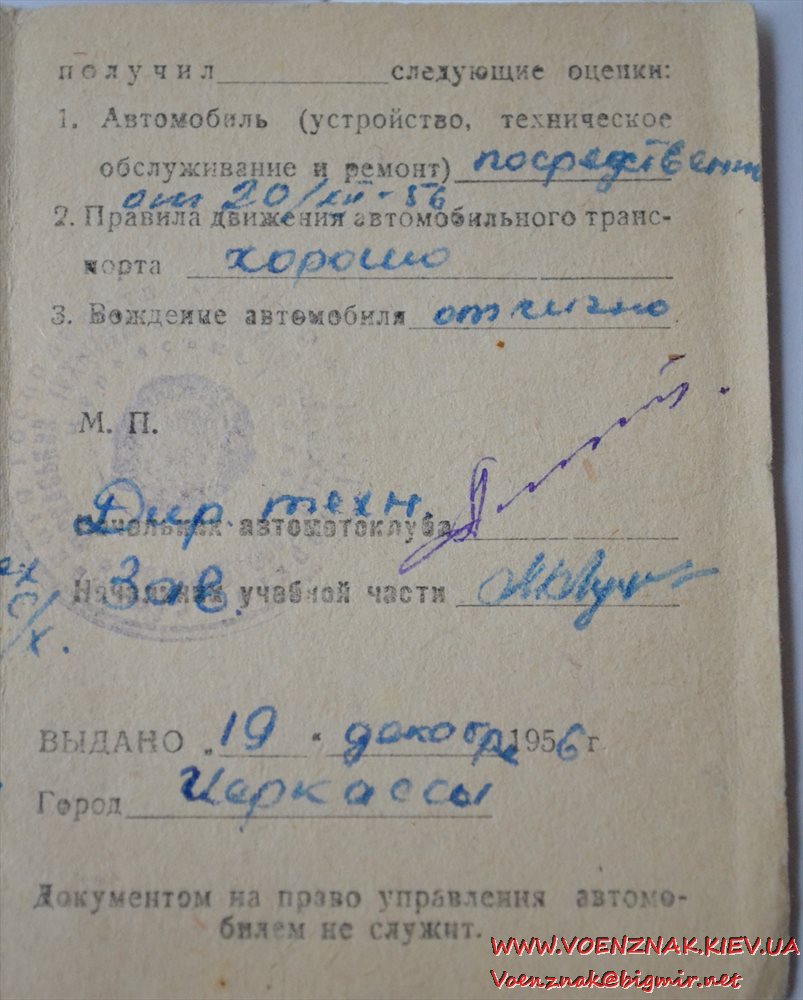 получил __________ следующие оценки:
1. Автомобиль (устройство, техническое
обслуживание и ремонт) посредственн
от 20/XII-56
2. Правила движения автомобильного транс-
порта хорошо
3. Вождение автомобиля отлично
М. П.
Дир. техн.
Начальник автомотоклуба
Зав.
Начальник учебной части
с/х.
ВЫДАНО „19" декабря 1956 г
Город Черкассы
Документом на право управления автомо-
билем не служит.
WWW.VOENZNAK.KIEV.UA
Voenznak@bigmir.net